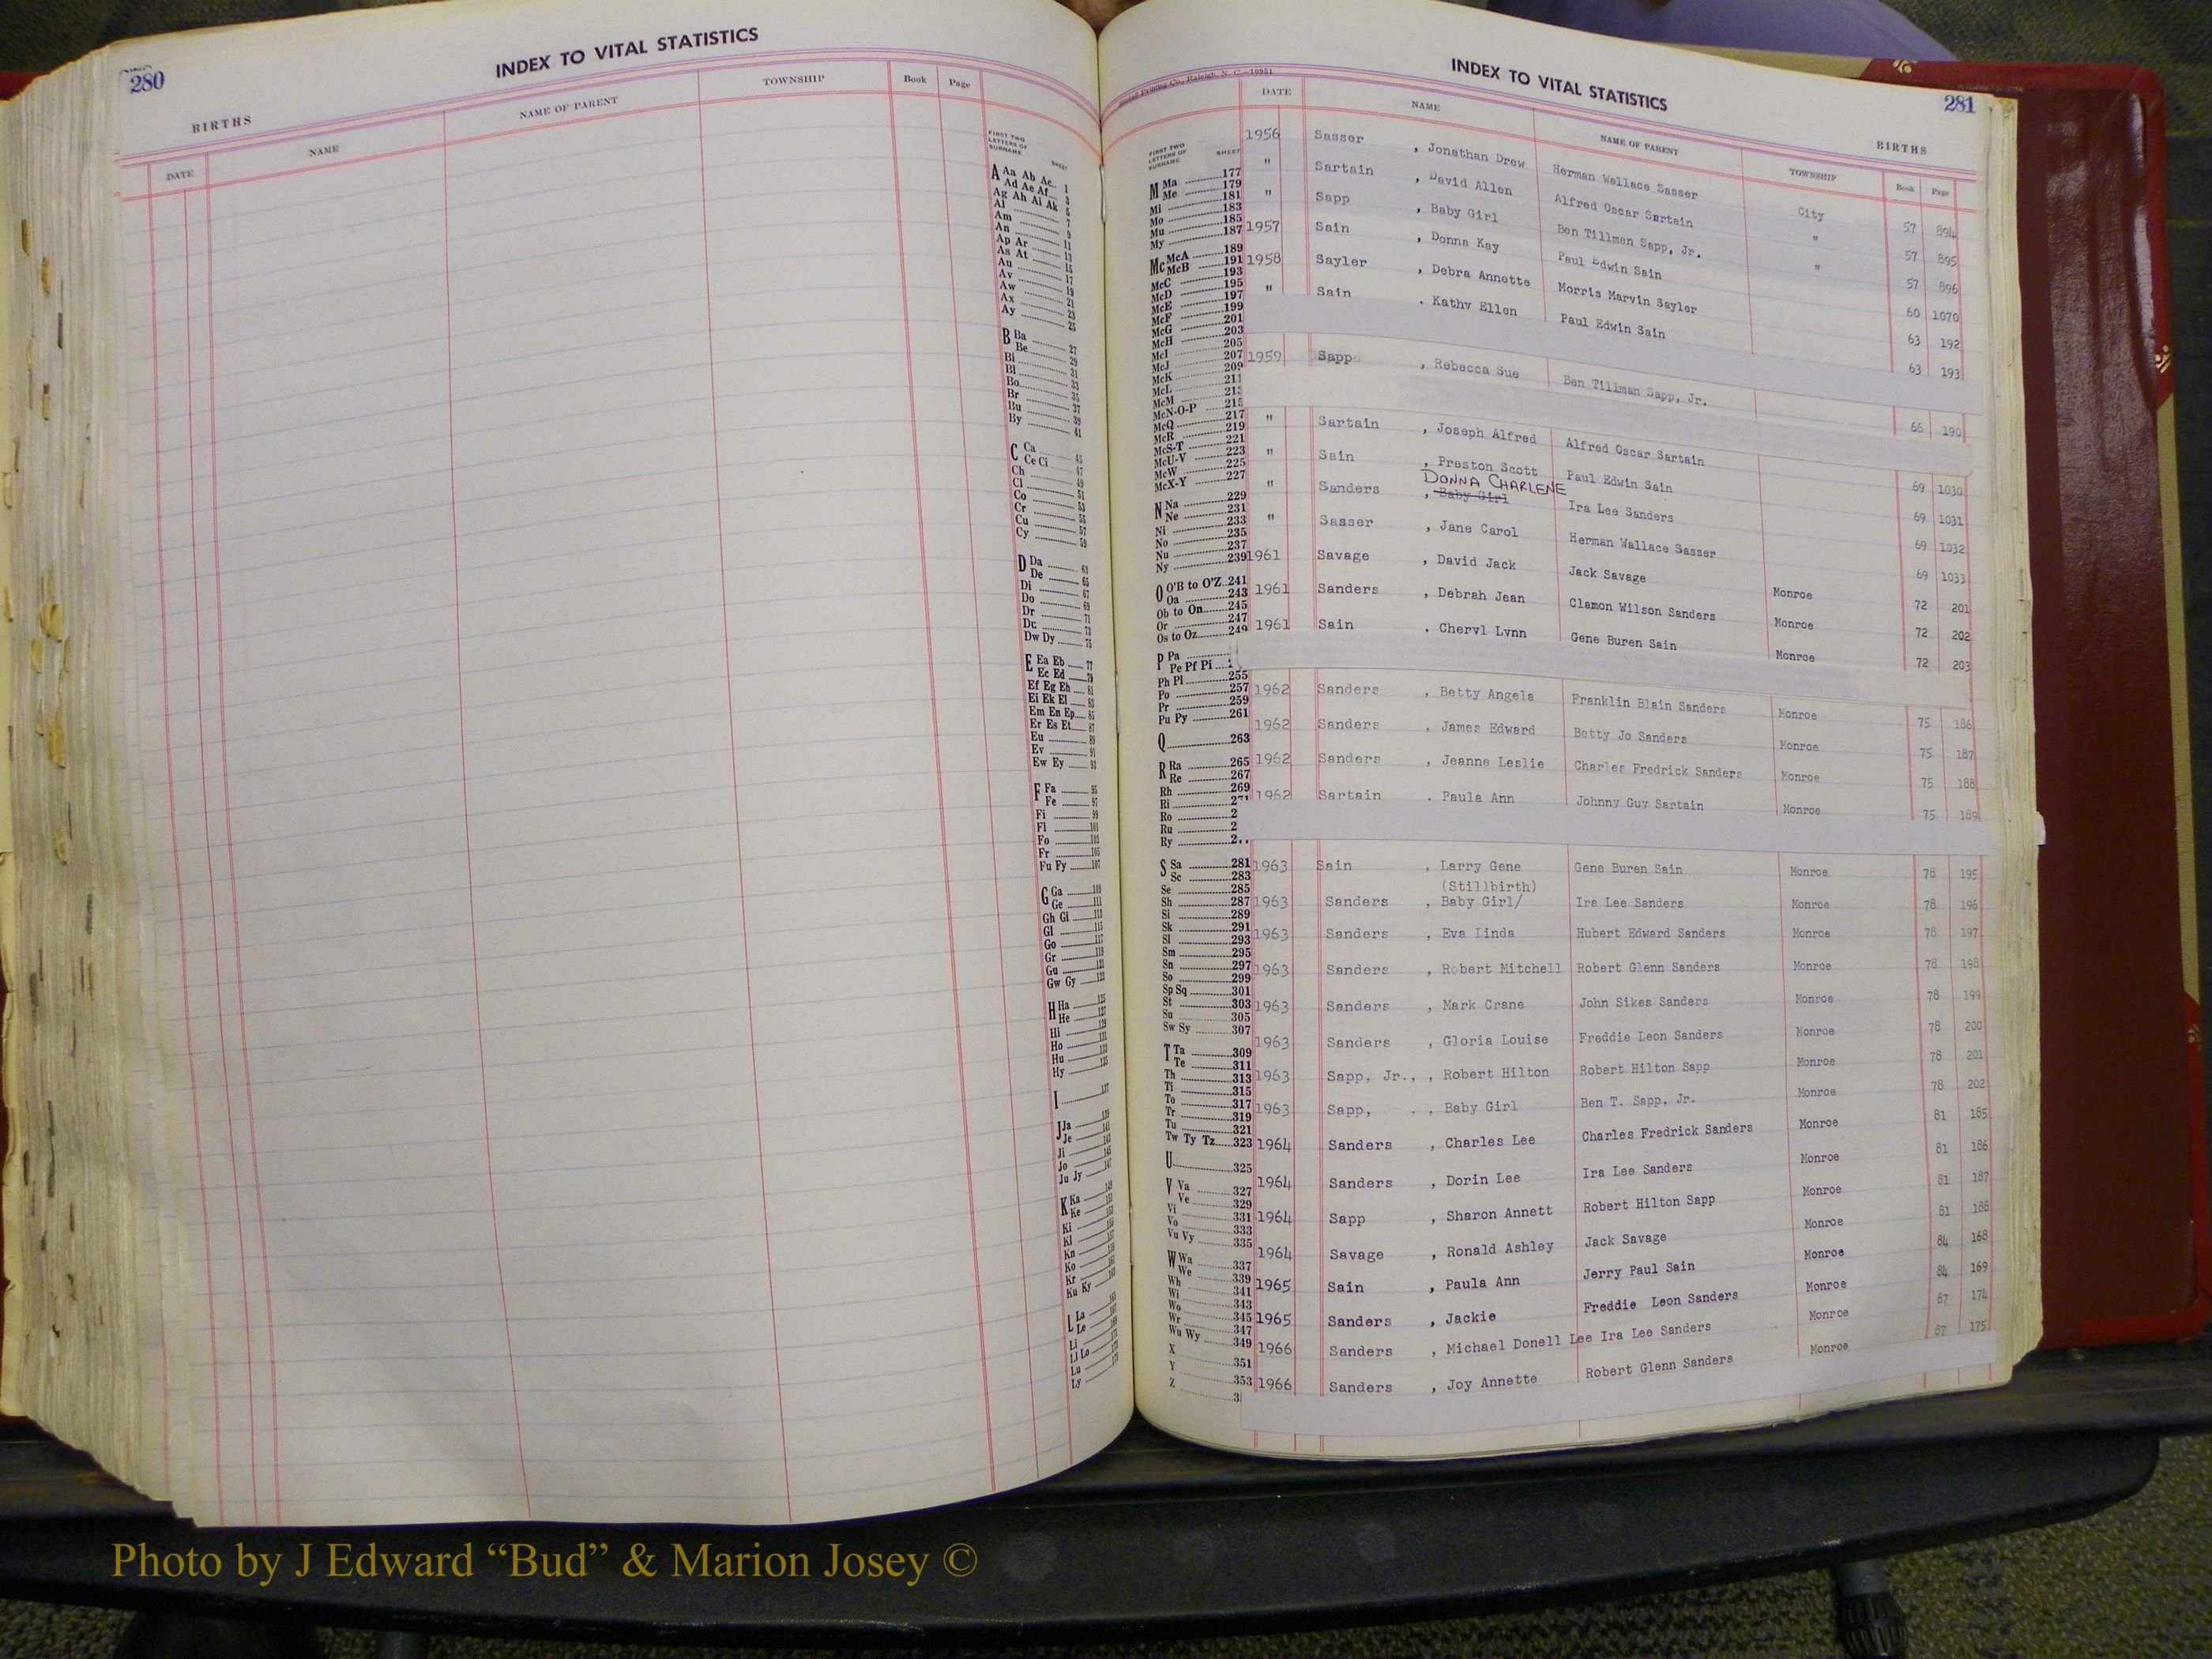 280
INDEX TO VITAL STATISTICS
BIRTHS
DATE NAME NAME OF PARENT TOWNSHIP Book Page
FIRST TWO LETTERS OF SURNAME SHEET
A Aa Ab Ac 1
Ad Ae Af 3
Ag Ah Ai Ak 5
Al 7
Am 9
An 11
Ap Ar 13
As At 15
Au 17
Av 19
Aw 21
Ax 23
Ay 25
B Ba 27
Be 29
Bi 31
Bl 33
Bo 35
Br 37
Bu 39
By 41
C Ca 45
Ce Ci 47
Ch 49
Cl 51
Co 53
Cr 55
Cu 57
Cy 59
D Da 63
De 65
Di 67
Do 69
Dr 71
Du 73
Dw Dy 75
E Ea Eb 77
Ec Ed 79
Ef Eg Eh 81
Ei Ek El 83
Em En Ep 85
Er Es Et 87
Eu 89
Ev 91
Ew Ey 93
F Fa 95
Fe 97
Fi 99
Fl 101
Fo 103
Fr 105
Fu Fy 107
G Ga 109
Ge 111
Gh Gi 113
Gl 115
Go 117
Gr 119
Gu 121
Gw Gy 123
H Ha 125
He 127
Hi 129
Ho 131
Hu 133
Hy 135
I 137
J Ja 139
Je 141
Ji 143
Jo 145
Ju Jy 147
K Ka 149
Ke
Ki
Kl
Kn
Ko
Kr
Ku Ky
L La
Le
Li
Ll Lo
Lu
Ly
281
INDEX TO VITAL STATISTICS
BIRTHS
Printing Co., Raleigh, N. C.—10951
DATE NAME NAME OF PARENT TOWNSHIP Book Page
FIRST TWO LETTERS OF SURNAME SHEET
M Ma 177
Me 179
Mi 181
Mo 183
Mu 185
My 187
Mc McA 189
McB 191
McC 193
McD 195
McE 197
McF 199
McG 201
McH 203
McI 205
McJ 207
McK 209
McL 211
McM 213
McN-O-P 215
McQ 217
McR 219
McS-T 221
McU-V 223
McW 225
McX-Y 227
N Na 229
Ne 231
Ni 233
No 235
Nu 237
Ny 239
O O'B to O'Z 241
Oa 243
Ob to On 245
Or 247
Os to Oz 249
P Pa
Pe Pf Pi
Ph Pl 255
Po 257
Pr 259
Pu Py 261
Q 263
R Ra 265
Re 267
Rh 269
Ri 271
Ro 2
Ru 2
Ry 2
S Sa 281
Sc 283
Se 285
Sh 287
Si 289
Sk 291
Sl 293
Sm 295
Sn 297
So 299
Sp Sq 301
St 303
Su 305
Sw Sy 307
T Ta 309
Te 311
Th 313
Ti 315
To 317
Tr 319
Tu 321
Tw Ty Tz 323
U 325
V Va 327
Ve 329
Vi 331
Vo 333
Vu Vy 335
W Wa 337
We 339
Wh 341
Wi 343
Wo 345
Wr 347
Wu Wy 349
X 351
Y 353
Z 3
1956 Sasser , Jonathan Drew Herman Wallace Sasser City 57 894
" Sartain , David Allen Alfred Oscar Sartain " 57 895
" Sapp , Baby Girl Ben Tillman Sapp, Jr. " 57 896
1957 Sain , Donna Kay Paul Edwin Sain 60 1070
1958 Sayler , Debra Annette Morris Marvin Sayler 63 192
" Sain , Kathy Ellen Paul Edwin Sain 63 193
1959 Sapp , Rebecca Sue Ben Tillman Sapp, Jr. 66 190
" Sartain , Joseph Alfred Alfred Oscar Sartain 69 1030
" Sain , Preston Scott Paul Edwin Sain 69 1031
DONNA CHARLENE
" Sanders , Baby Girl Ira Lee Sanders 69 1032
" Sasser , Jane Carol Herman Wallace Sasser 69 1033
1961 Savage , David Jack Jack Savage Monroe 72 201
1961 Sanders , Debrah Jean Clamon Wilson Sanders Monroe 72 202
1961 Sain , Cheryl Lynn Gene Buren Sain Monroe 72 203
1962 Sanders , Betty Angela Franklin Blain Sanders Monroe 75 186
1962 Sanders , James Edward Betty Jo Sanders Monroe 75 187
1962 Sanders , Jeanne Leslie Charles Fredrick Sanders Monroe 75 188
1962 Sartain , Paula Ann Johnny Guy Sartain Monroe 75 189
1963 Sain , Larry Gene Gene Buren Sain Monroe 78 195
(Stillbirth)
1963 Sanders , Baby Girl/ Ira Lee Sanders Monroe 78 196
1963 Sanders , Eva Linda Hubert Edward Sanders Monroe 78 197
1963 Sanders , Robert Mitchell Robert Glenn Sanders Monroe 78 198
1963 Sanders , Mark Crane John Sikes Sanders Monroe 78 199
1963 Sanders , Gloria Louise Freddie Leon Sanders Monroe 78 200
1963 Sapp, Jr., , Robert Hilton Robert Hilton Sapp Monroe 78 201
1963 Sapp, , Baby Girl Ben T. Sapp, Jr. Monroe 78 202
1964 Sanders , Charles Lee Charles Fredrick Sanders Monroe 81 185
1964 Sanders , Dorin Lee Ira Lee Sanders Monroe 81 186
1964 Sapp , Sharon Annett Robert Hilton Sapp Monroe 81 187
1964 Savage , Ronald Ashley Jack Savage Monroe 81 188
1965 Sain , Paula Ann Jerry Paul Sain Monroe 84 168
1965 Sanders , Jackie Freddie Leon Sanders Monroe 84 169
1966 Sanders , Michael Donell Lee Ira Lee Sanders Monroe 87 174
1966 Sanders , Joy Annette Robert Glenn Sanders Monroe 87 175
Photo by J Edward “Bud” & Marion Josey ©